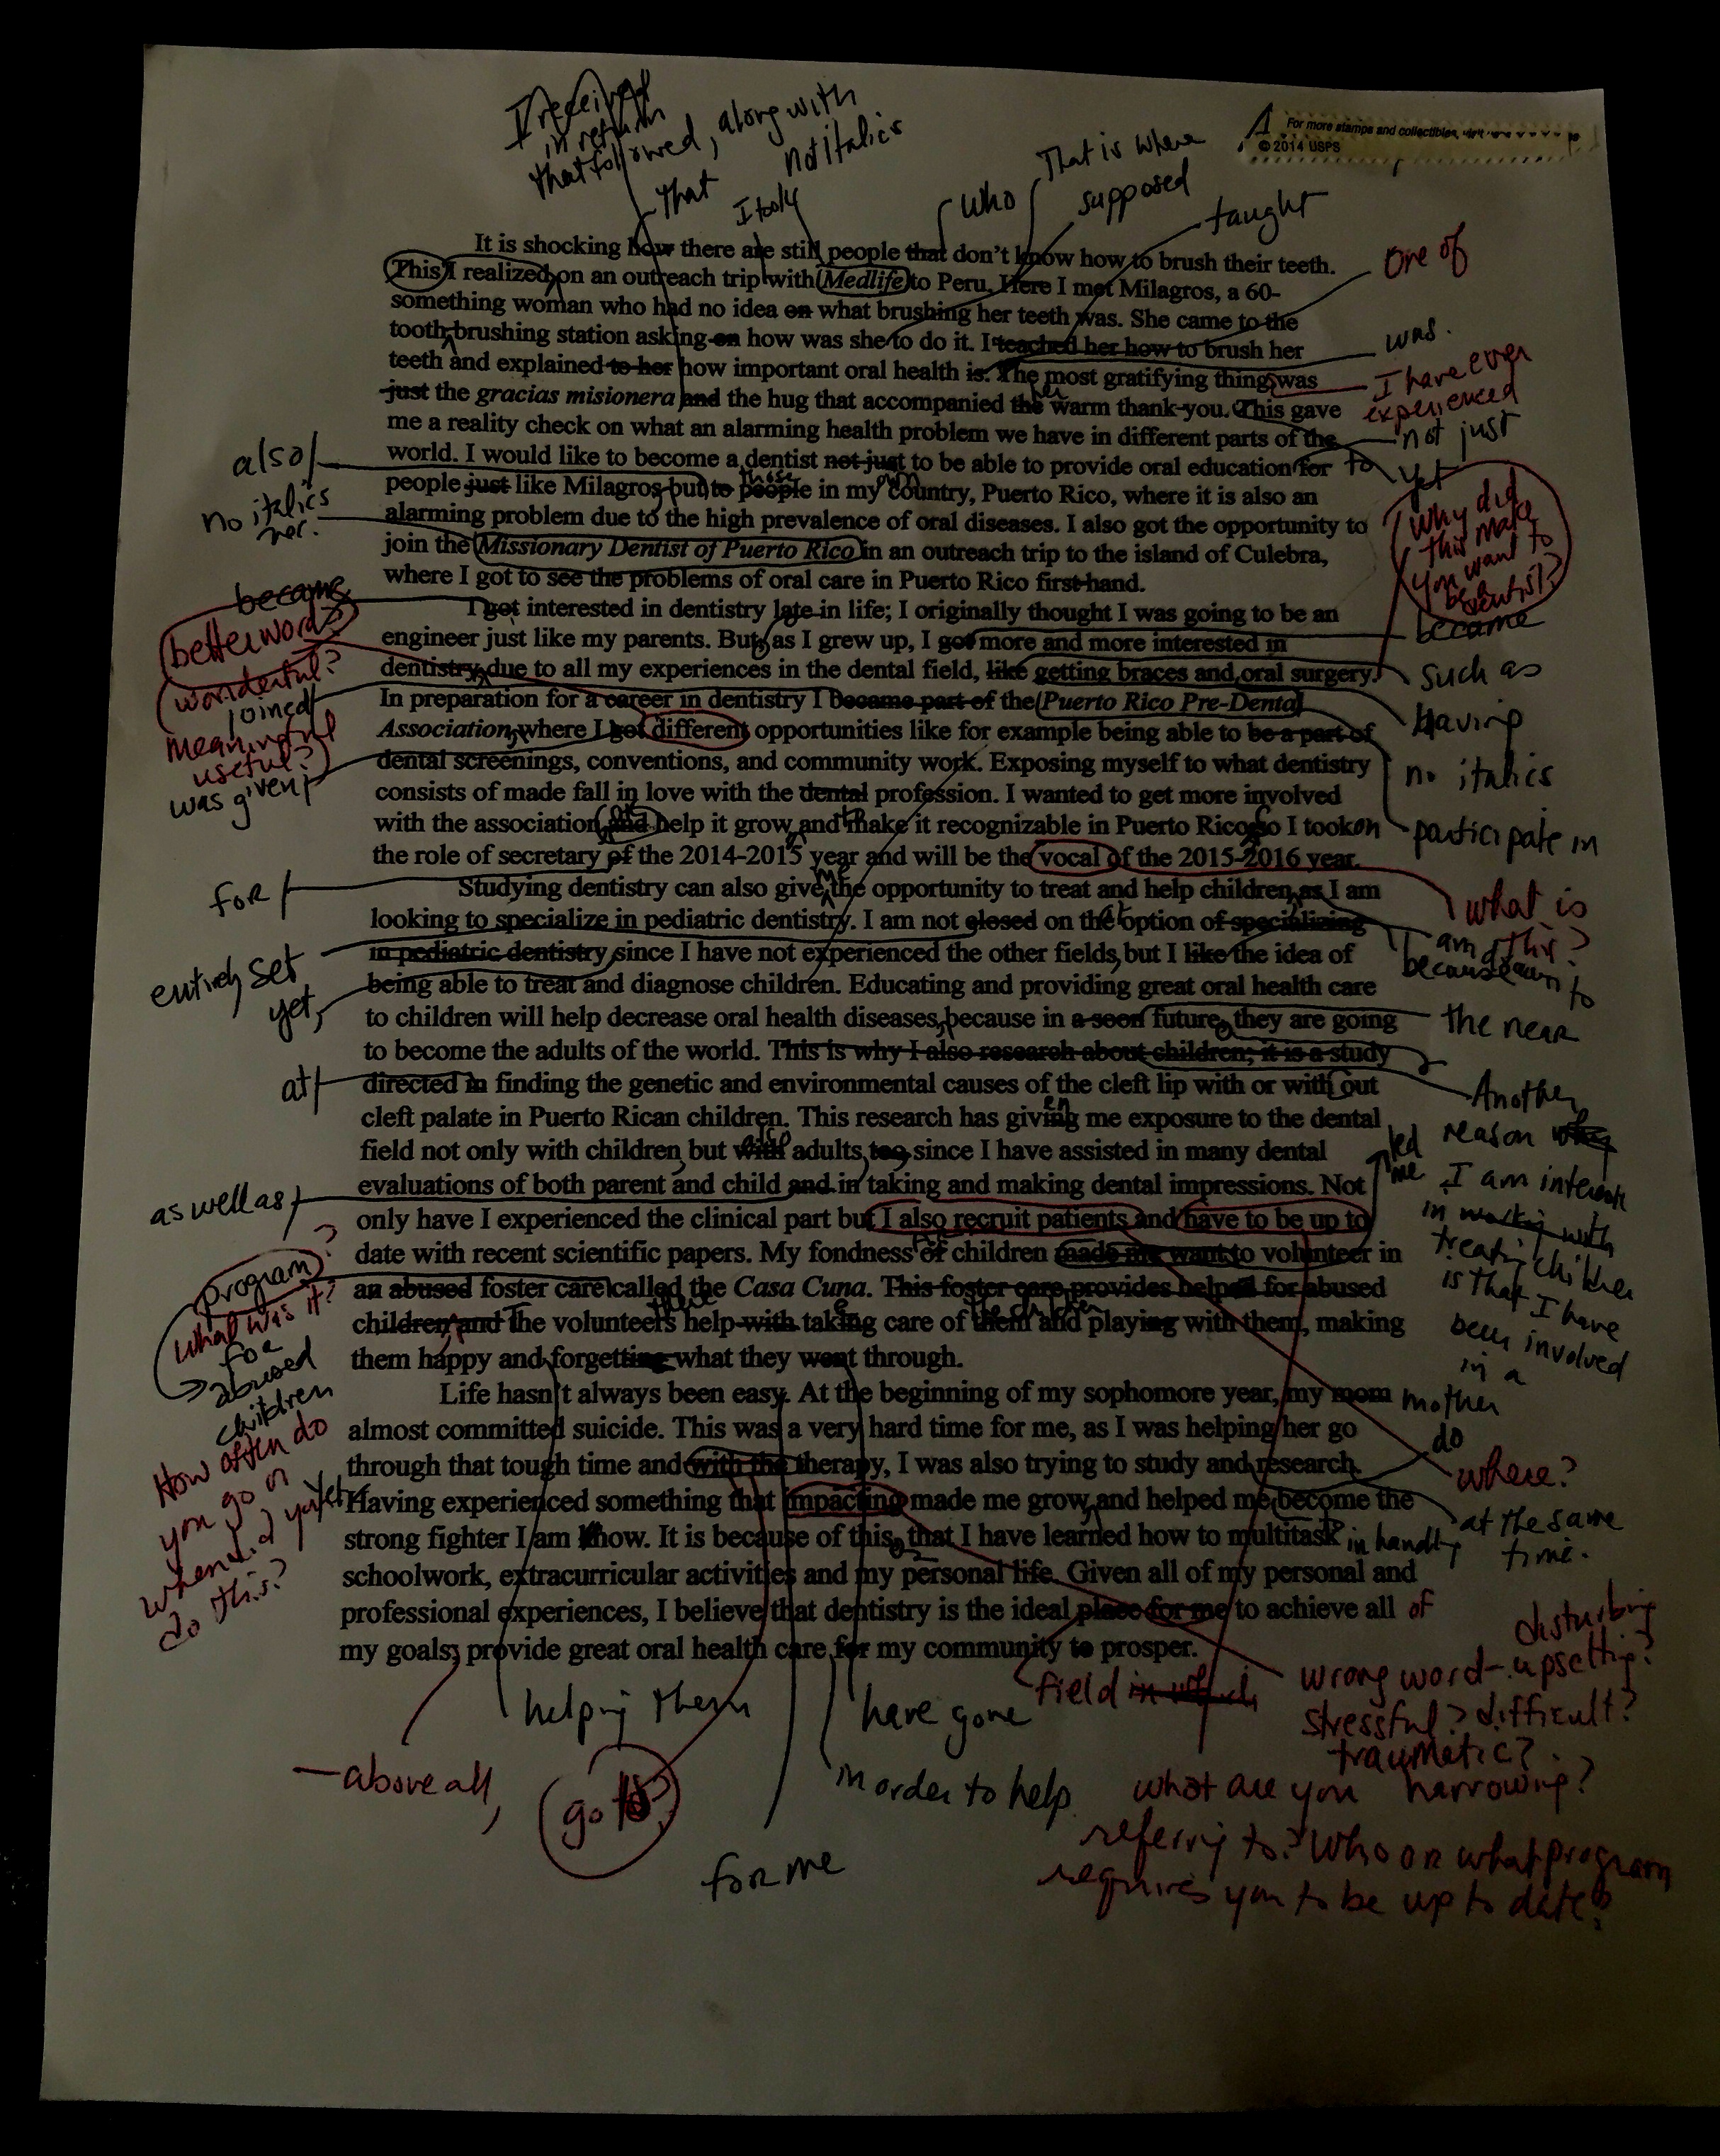 I received
in return
that followed, along with
not italics
that
I took
who
That is where
supposed
taught
For more stamps and collectibles, visit
© 2014 USPS
It is shocking how there are still people that don't know how to brush their teeth.
This I realized on an outreach trip with Medlife to Peru. Here I met Milagros, a 60-
something woman who had no idea on what brushing her teeth was. She came to the
tooth brushing station asking on how was she to do it. I teached her how to brush her
teeth and explained to her how important oral health is. The most gratifying thing was
just the gracias misionera and the hug that accompanied the warm thank-you. This gave
me a reality check on what an alarming health problem we have in different parts of the
world. I would like to become a dentist not just to be able to provide oral education for
people just like Milagros but to people in my country, Puerto Rico, where it is also an
alarming problem due to the high prevalence of oral diseases. I also got the opportunity to
join the Missionary Dentist of Puerto Rico in an outreach trip to the island of Culebra,
where I got to see the problems of oral care in Puerto Rico first-hand.
I got interested in dentistry late in life; I originally thought I was going to be an
engineer just like my parents. But, as I grew up, I got more and more interested in
dentistry due to all my experiences in the dental field, like getting braces and oral surgery.
In preparation for a career in dentistry I became part of the Puerto Rico Pre-Dental
Association, where I got different opportunities like for example being able to be a part of
dental screenings, conventions, and community work. Exposing myself to what dentistry
consists of made fall in love with the dental profession. I wanted to get more involved
with the association, and help it grow and make it recognizable in Puerto Rico so I took on
the role of secretary of the 2014-2015 year and will be the vocal of the 2015-2016 year.
Studying dentistry can also give me the opportunity to treat and help children, as I am
looking to specialize in pediatric dentistry. I am not closed on the option of specializing
in pediatric dentistry since I have not experienced the other fields, but I like the idea of
being able to treat and diagnose children. Educating and providing great oral health care
to children will help decrease oral health diseases, because in a soon future, they are going
to become the adults of the world. This is why I also research about children; it is a study
directed in finding the genetic and environmental causes of the cleft lip with or with out
cleft palate in Puerto Rican children. This research has giving me exposure to the dental
field not only with children, but with adults, too, since I have assisted in many dental
evaluations of both parent and child and in taking and making dental impressions. Not
only have I experienced the clinical part but I also recruit patients and have to be up to
date with recent scientific papers. My fondness of children made me want to volunteer in
an abused foster care called the Casa Cuna. This foster care provides help for abused
children, and the volunteers help with taking care of them and playing with them, making
them happy and forgetting what they went through.
Life hasn't always been easy. At the beginning of my sophomore year, my mom
almost committed suicide. This was a very hard time for me, as I was helping her go
through that tough time and with the therapy, I was also trying to study and research.
Having experienced something that impacting made me grow, and helped me become the
strong fighter I am know. It is because of this, that I have learned how to multitask
schoolwork, extracurricular activities and my personal life. Given all of my personal and
professional experiences, I believe that dentistry is the ideal place for me to achieve all of
my goals; provide great oral health care for my community to prosper.
One of
was.
I have ever
experienced
not just
yet
Why did
this make
you want to
be a
dentist?
became
such as
having
no italics
participate in
what is
this?
the near
Another
reason why
I am interested
in working with
treating children
is that I have
been involved
in a
led
me
mother
do
where?
at the same
time.
in handling
also
no italics
became
better word?
wonderful?
joined
meaningful
useful?
was given
for
entirely set
yet,
at
as well as
program?
what was it?
for
abused
children
How often do
you go or
when did you
do this?
Yet
helping them
have gone
field in which
disturbing
wrong word- upsetting?
stressful? difficult?
traumatic?
harrowing?
—above all,
go to
in order to help
for me
what are you
referring to? Who or what program
requires you to be up to date?